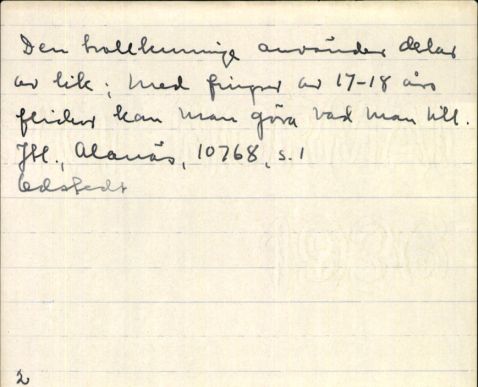 Den trollkunnige använder delar
av lik; med fingrar av 17-18 års
flickor kan man göra vad man vill.
Jtl., Alanäs, 10768, s. 1
Edstedt
2